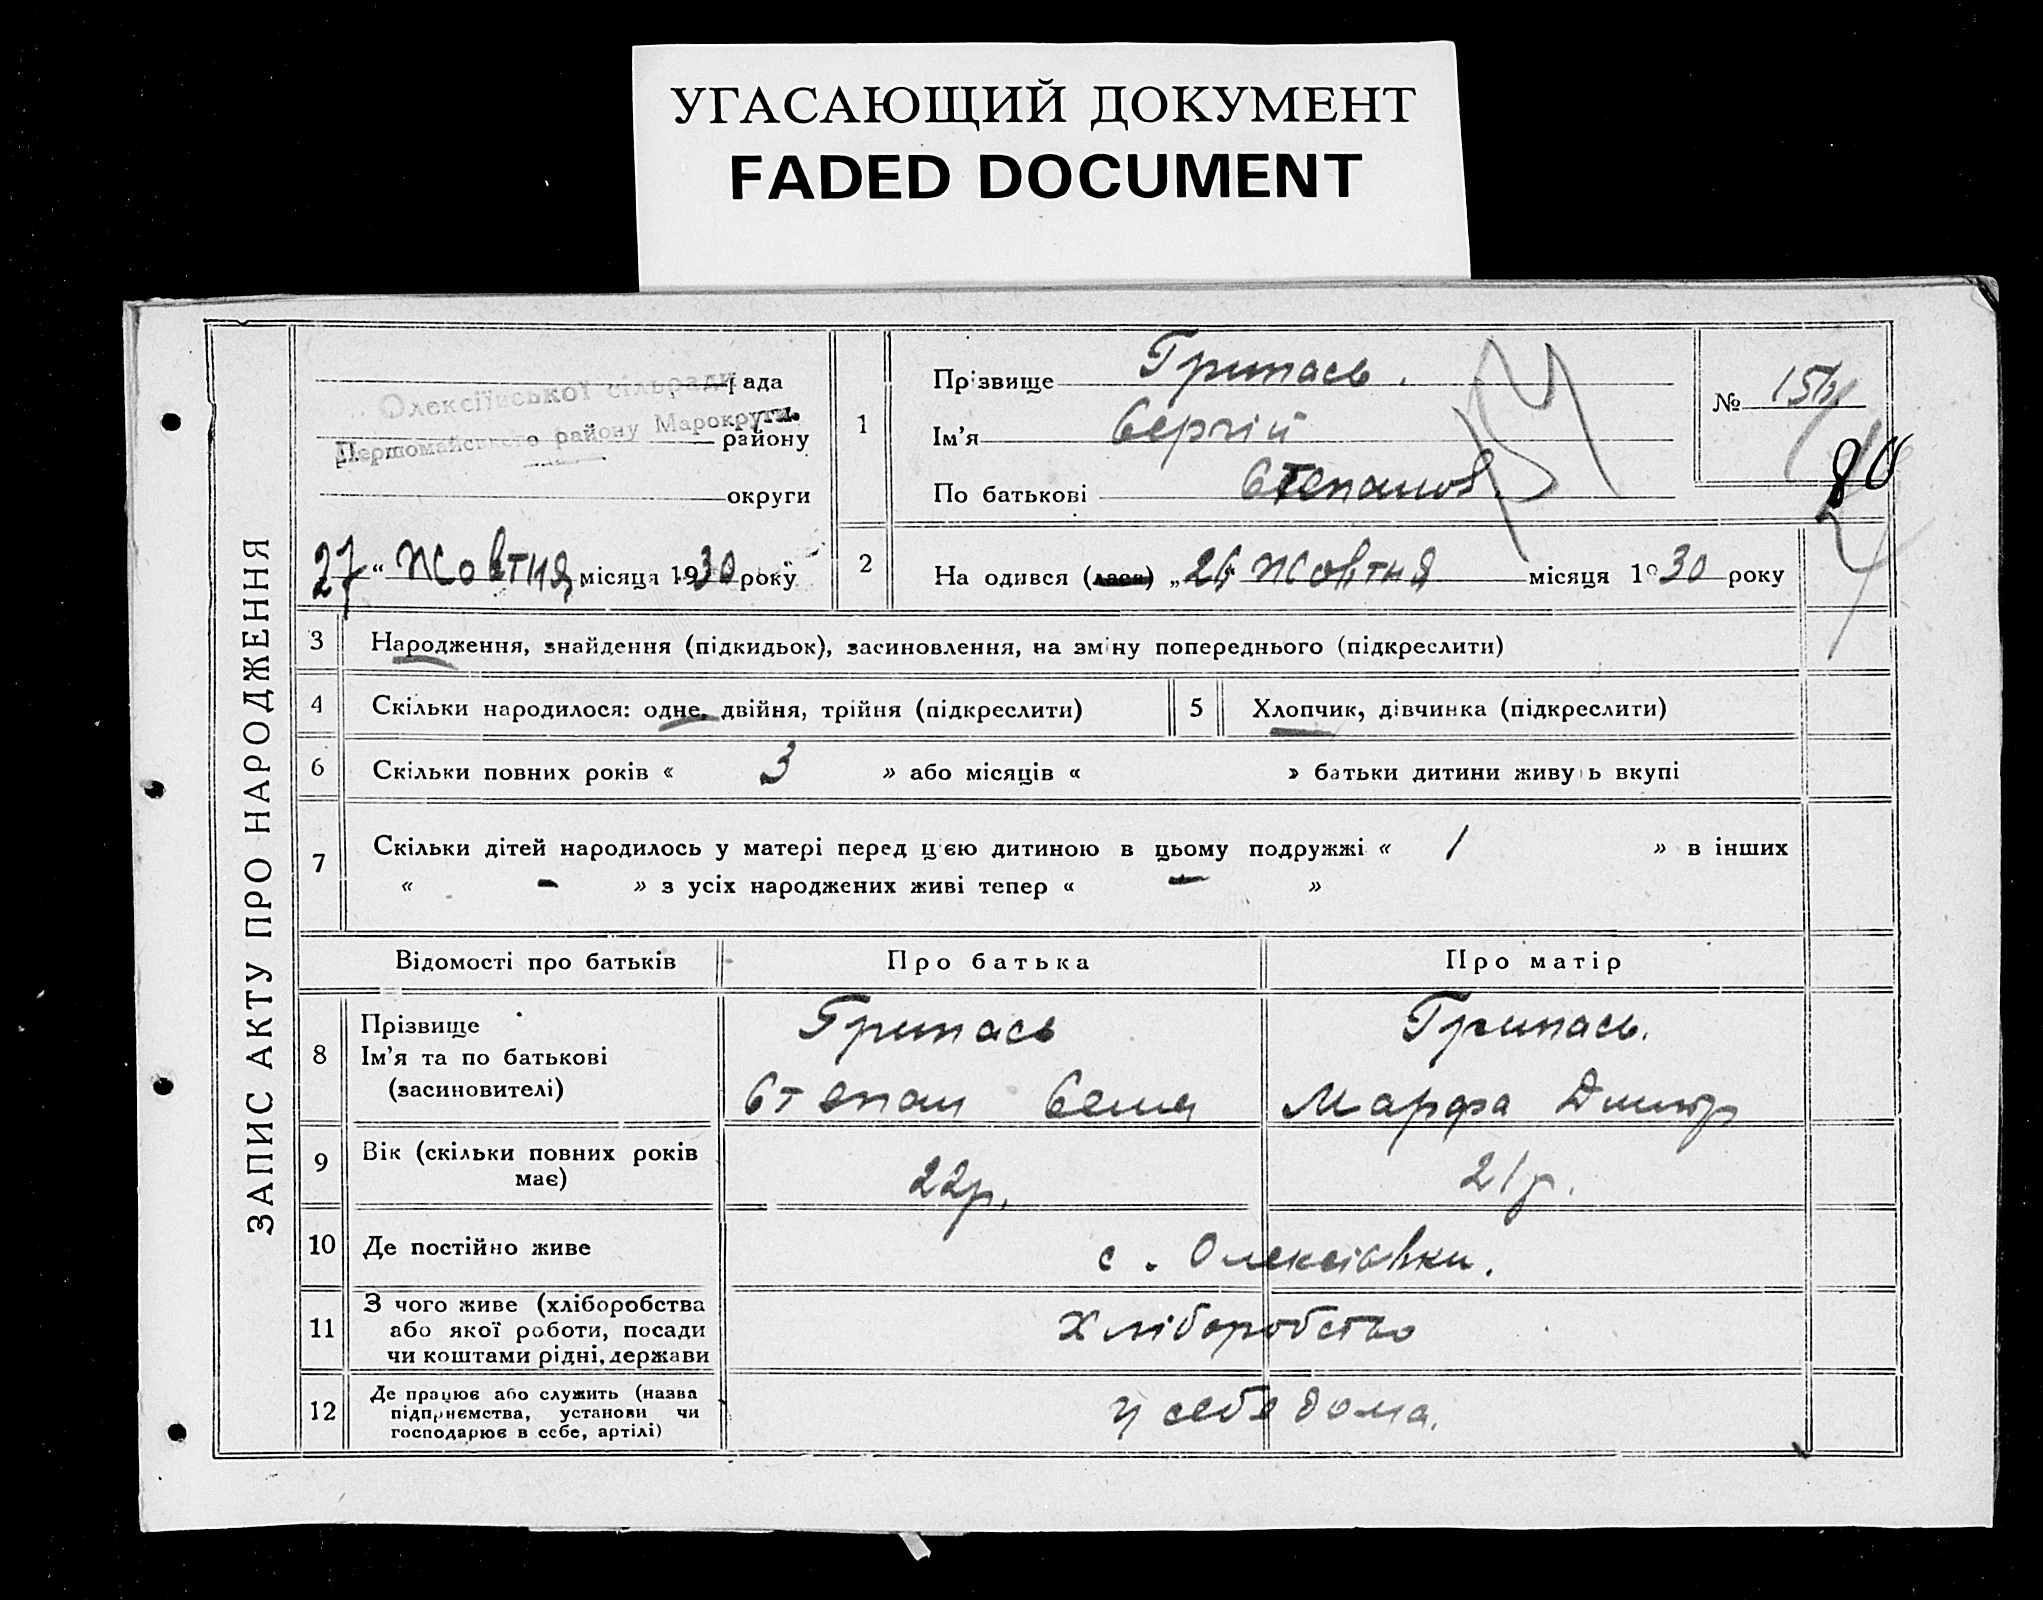 УГАСАЮЩИЙ ДОКУМЕНТ
FADED DOCUMENT
ЗАПИС АКТУ ПРО НАРОДЖЕННЯ
рада
Олексіївської сільради
Першомайського району Марокруги
району
округи
27 " Жовтня місяця 1930 року
1
Прізвище Грипась.
Ім'я Сергій
По батькові Степанов.
№
80
2
На одився (лася) „ Жовтня місяця 1930 року
3
Народження, знайдення (підкидьок), засиновлення, на зміну попереднього (підкреслити)
4
Скільки народилося: одне, двійня, трійня (підкреслити)
5
Хлопчик, дівчинка (підкреслити)
6
Скільки повних років « 3 » або місяців « » батьки дитини живуть вкупі
7
Скільки дітей народилось у матері перед цією дитиною в цьому подружжі « 1 » в інших
« - » з усіх народжених живі тепер « - »
Відомості про батьків
Про батька
Про матір
8
Прізвище
Ім'я та по батькові
(засиновителі)
Грипась
Степан Семе
Грипась.
Марфа Дмитр
9
Вік (скільки повних років
має)
22р.
21р.
10
Де постійно живе
с. Олексіовки.
11
З чого живе (хліборобства
або якої роботи, посади
чи коштами рідні, держави
Хліборобство
12
Де працює або служить (назва
підприємства, установи чи
господарює в себе, артілі)
у себе дома.